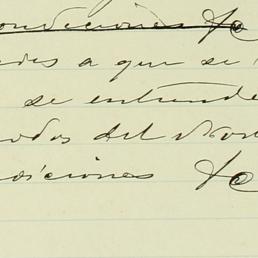 condiciones &c
des a que se
se entiende
odos del Nor
siciones &c